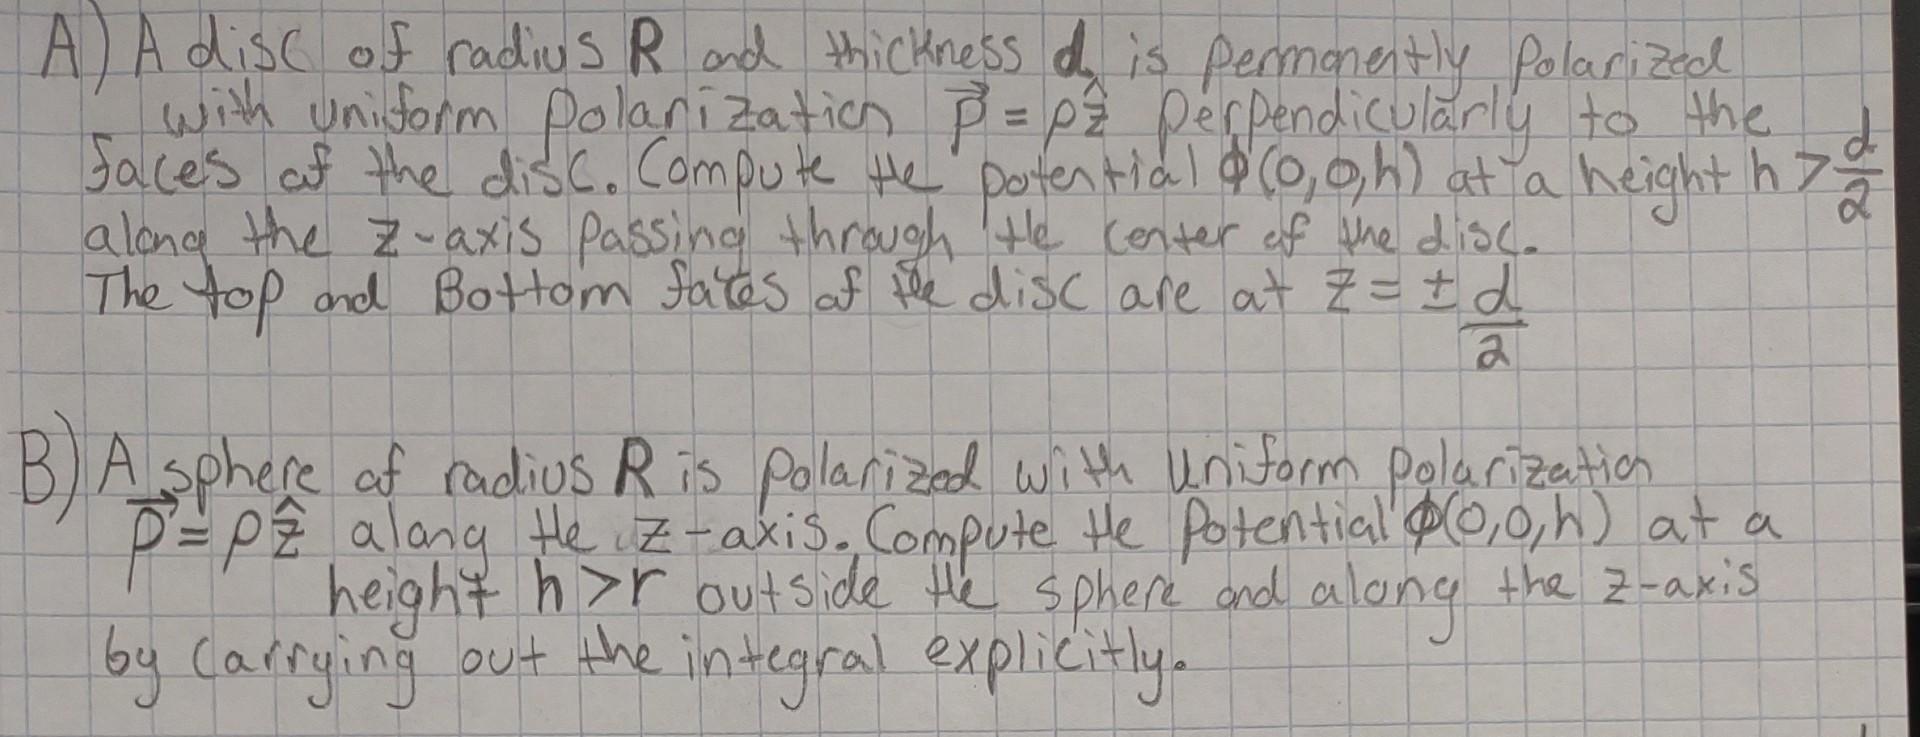 A) A disc of radius R and thickness d is permanently polarized
with uniform polarization P⃗ = pẑ perpendicularly to the
faces of the disc. Compute the potential ϕ(0,0,h) at a height h > d/2
along the z-axis passing through the center of the disc.
The top and Bottom fates of the disc are at z = ± d/2
B) A sphere of radius R is polarized with uniform polarization
P⃗ = pẑ along the z-axis. Compute the potential ϕ(0,0,h) at a
height h > r outside the sphere and along the z-axis
by carrying out the integral explicitly.